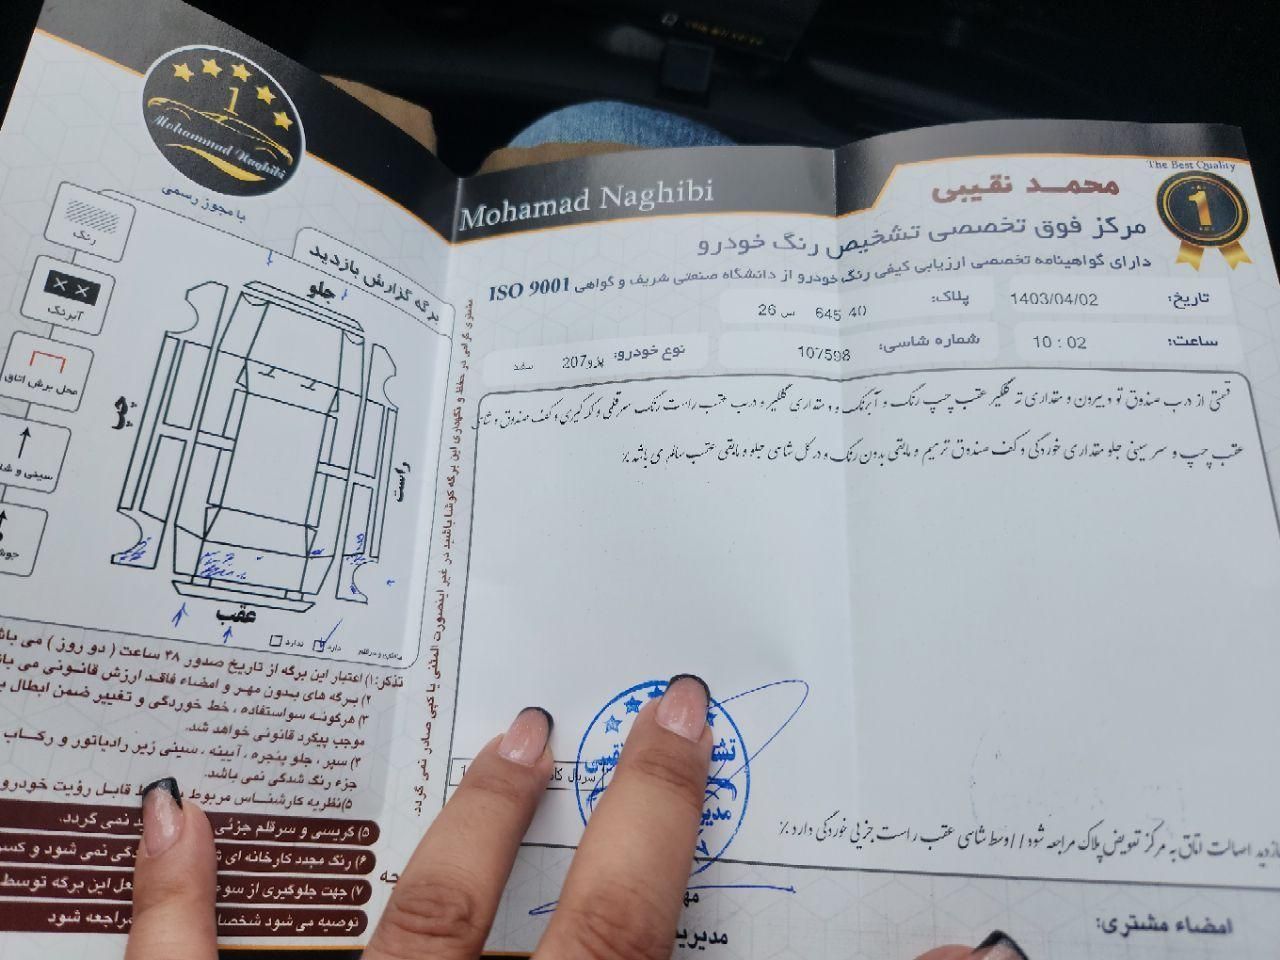 Mohammad Naghibi
1
با مجوز رسمی
رنگ
آبرنگ
محل برش اتاق
سینی و شا
جوش
برگه گزارش بازدید
جلو
چپ
راست
عقب
دارد
ندارد
تذکر: ۱) اعتبار این برگه از تاریخ صدور ۴۸ ساعت ( دو روز ) می باش
۲) برگه های بدون مهر و امضاء فاقد ارزش قانونی می با
۳) هرگونه سواستفاده ، خط خوردگی و تغییر ضمن ابطال ب
موجب پیگرد قانونی خواهد شد.
۴) سپر ، جلو پنجره ، آیینه ، سینی زیر رادیاتور و رکاب
جزء رنگ شدگی نمی باشد.
۵) نظریه کارشناس مربوط قابل رؤیت خودرو
۵) گریسی و سرقلم جزئی نمی گردد.
۶) رنگ مجدد کارخانه ای دگی نمی شود و کسر
۷) جهت جلوگیری از سوء عل این برگه توسط
توصیه می شود شخصا مراجعه شود
مشتری گرامی در حفظ و نگهداری این برگه کوشا باشید در غیر اینصورت المثنی یا کپی صادر نمی گردد.
Mohamad Naghibi
The Best Quality
1
محمد نقیبی
مرکز فوق تخصصی تشخیص رنگ خودرو
دارای گواهینامه تخصصی ارزیابی کیفی رنگ خودرو از دانشگاه صنعتی شریف و گواهی ISO 9001
تاریخ: 1403/04/02
پلاک: 40 645 س 26
ساعت: 10 : 02
شماره شاسی: 107598
نوع خودرو: پژو207 سفید
قسمتی از درب صندوق تو و بیرون و مقداری ته گلگیر عقب چپ رنگ و آبرنگ و مقداری گلگیر و درب عقب راست رنگ سرقلمی و لکه گیری و کف صندوق و شاسی
عقب چپ و سر سینی جلو مقداری خوردگی و کف صندوق ترمیم و مابقی بدون رنگ و در کل شاسی جلو و مابقی عقب سالم می باشد ٪
سریال کا
بازدید اصالت اتاق به مرکز تعویض پلاک مراجعه شود // وسط شاسی عقب راست جزیی خوردگی دارد ٪
امضاء مشتری: